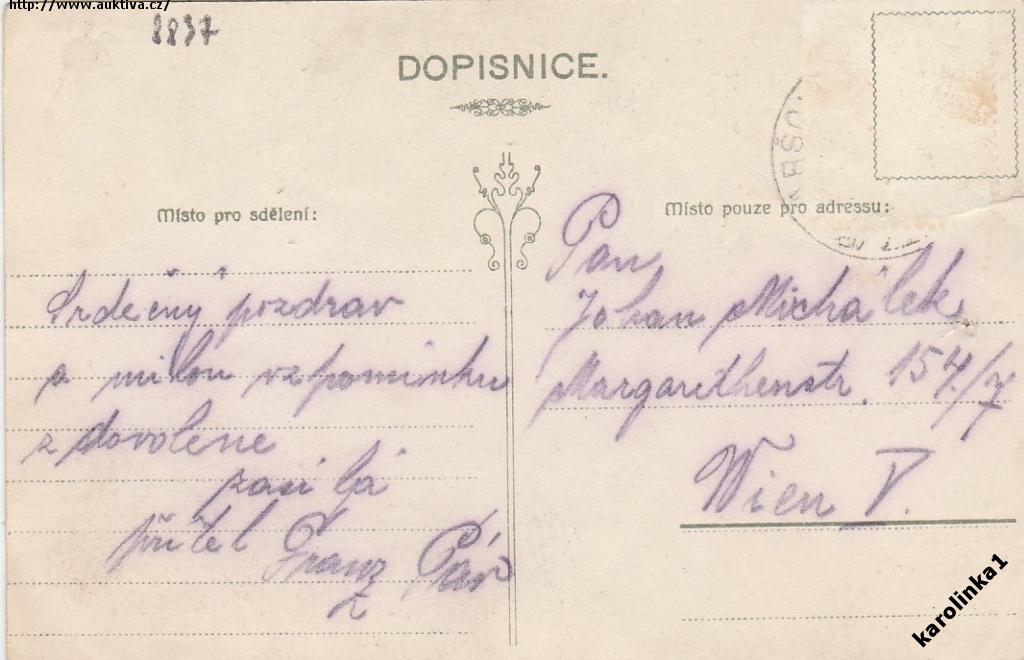 http://www.auktiva.cz/
8837
DOPISNICE.
Místo pro sdělení:
Srdečný pozdrav
a milou vzpomínku
z dovolene
zasílá
přítel Franz Pár
Místo pouze pro adressu:
Pan
Johan Michálek
Margarethenstr. 154/7
Wien V.
karolinka1